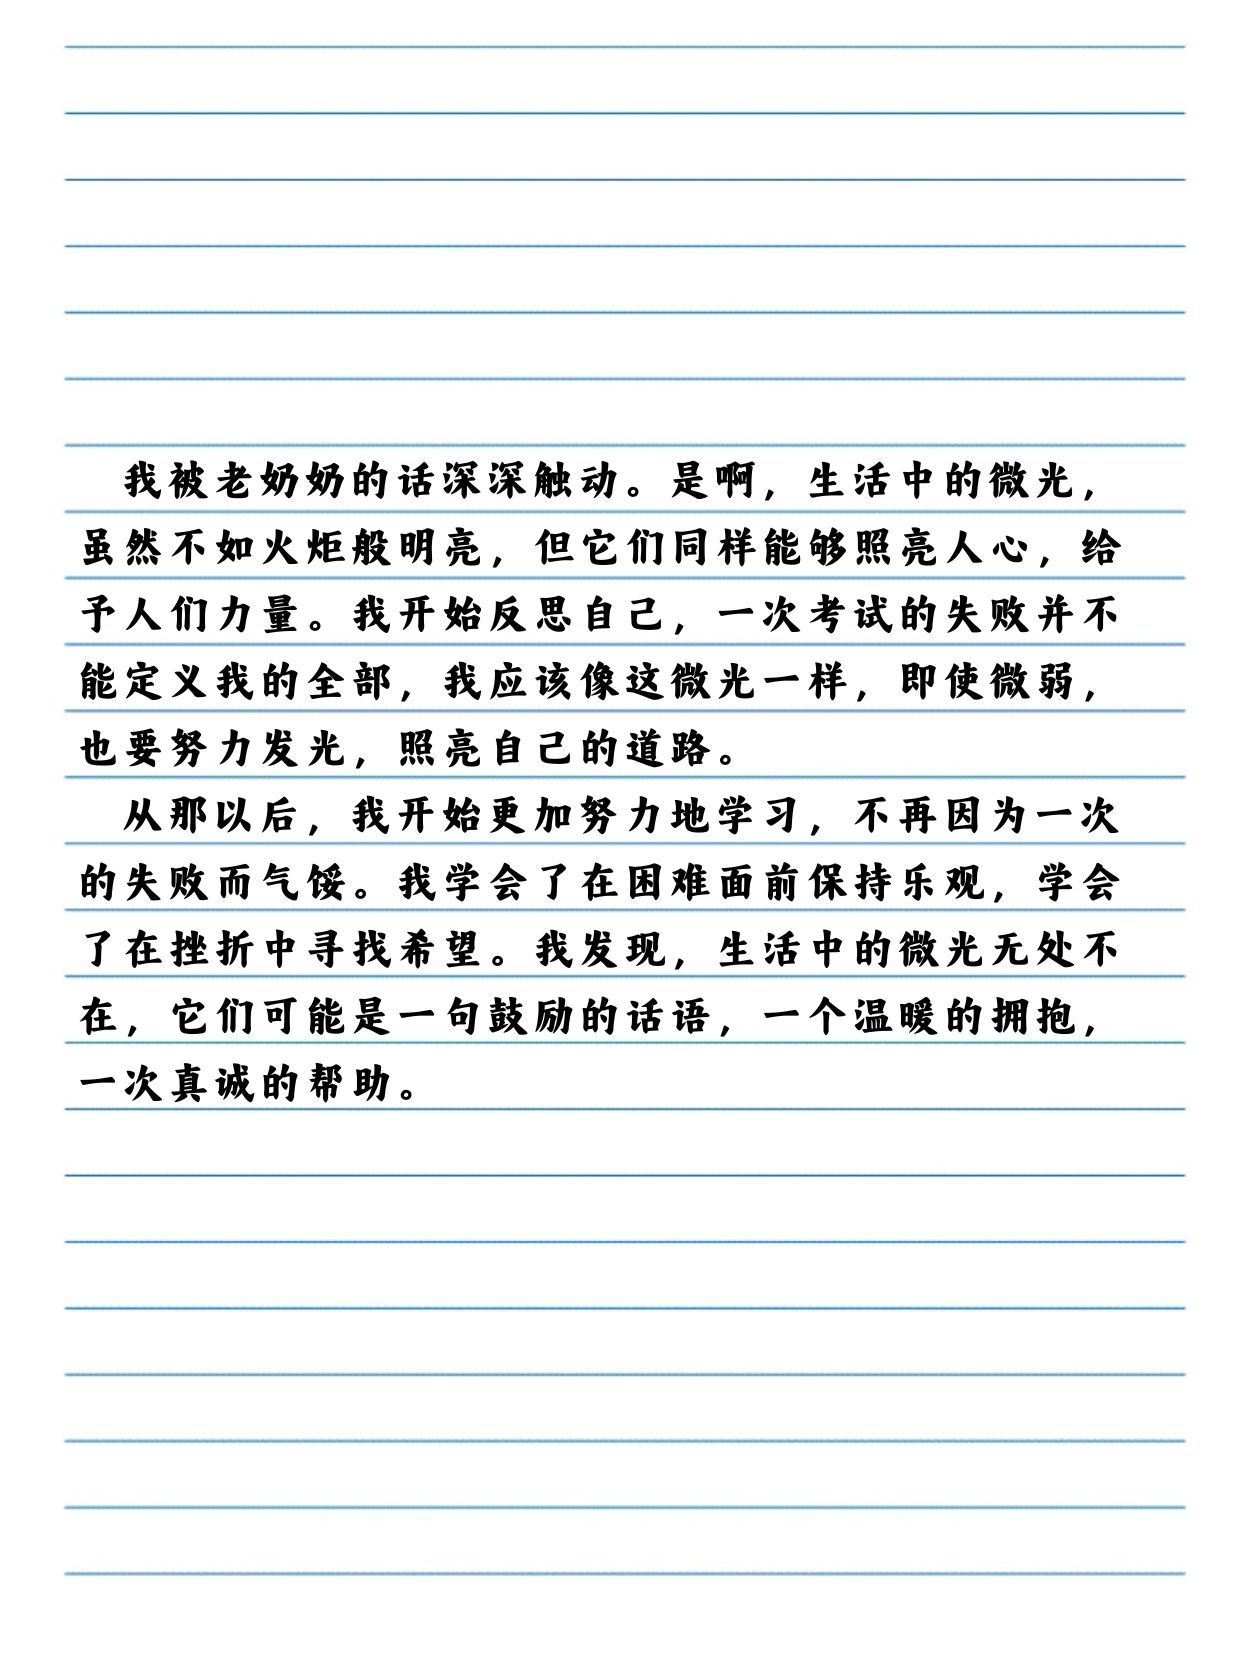 我被老奶奶的话深深触动。是啊，生活中的微光，
虽然不如火炬般明亮，但它们同样能够照亮人心，给
予人们力量。我开始反思自己，一次考试的失败并不
能定义我的全部，我应该像这微光一样，即使微弱，
也要努力发光，照亮自己的道路。
从那以后，我开始更加努力地学习，不再因为一次
的失败而气馁。我学会了在困难面前保持乐观，学会
了在挫折中寻找希望。我发现，生活中的微光无处不
在，它们可能是一句鼓励的话语，一个温暖的拥抱，
一次真诚的帮助。